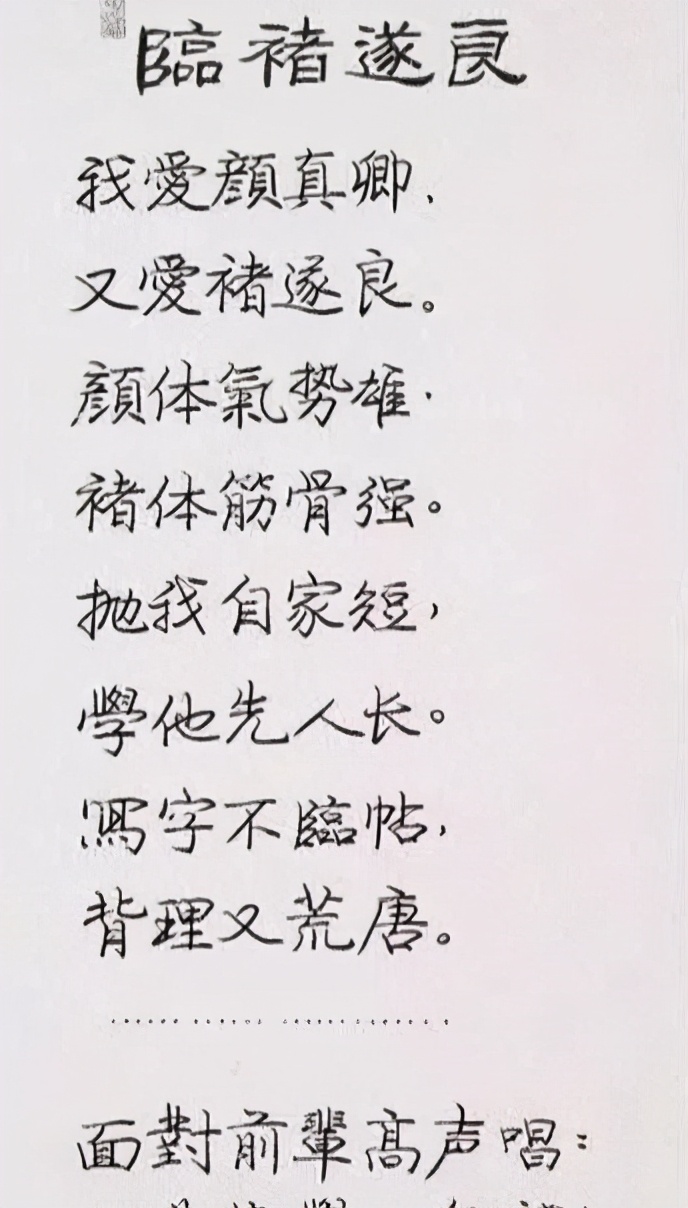 臨褚遂良
我愛顔真卿，
又愛褚遂良。
顔体氣势雄，
褚体筋骨强。
抛我自家短，
學他先人长。
寫字不臨帖，
背理又荒唐。
面對前輩高声唱：